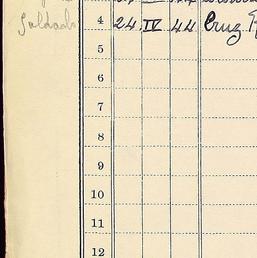 Soldado 4 24 IV 44 Cruz
5
6
7
8
9
10
11
12